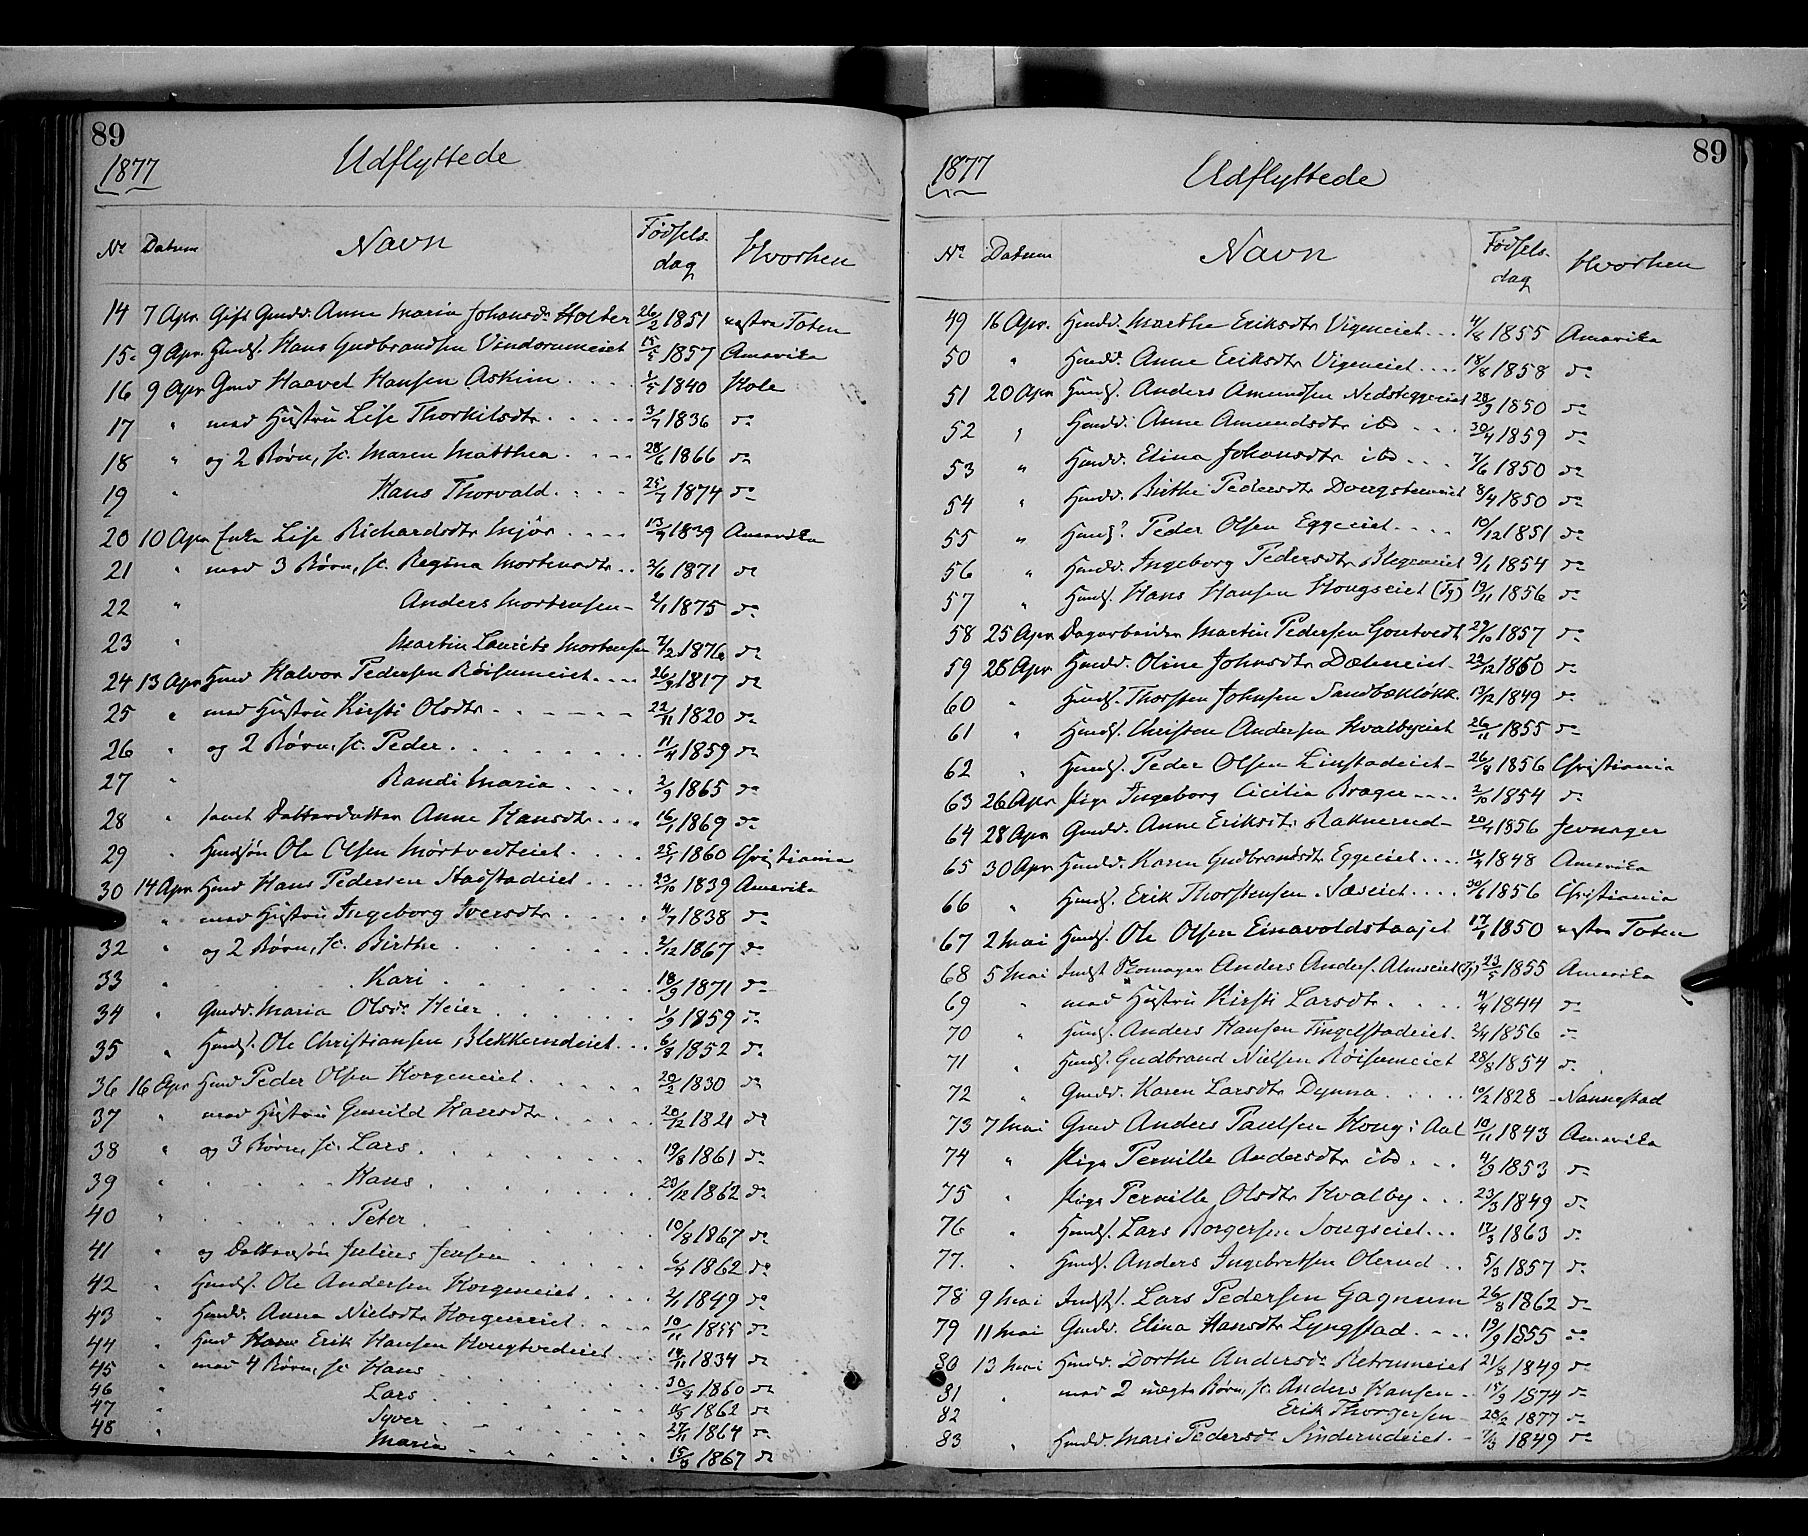 89
1877 Udflyttede
No Datum Navn Fødsels- dag Hvorhen
14 7 Apr. Gift Gmdd. Anne Maria Johansdr Holter 26/2 1851 vestre Toten
15 9 Apr. Hmds. Hans Gudbrandsen Vindorumeiet 15/5 1857 Amerika
16 9 Apr Gmd Haavel Hansen Askim 1/5 1840 Hole
17 " med Hustru Lise Thorkilsdtr 3/7 1836 do
18 " og 2 Børn, sc. Maren Matthea 28/6 1866 do
19 " Hans Thorvald 25/7 1874 do
20 10 Apr Enke Lise Richardsdtr Mjør 13/9 1839 Amerika
21 " med 3 Børn, sc. Regina Mortensdtr 2/6 1871 do
22 " Anders Mortensen 2/1 1875 do
23 " Martin Laurits Mortensen 7/2 1876 do
24 13 Apr Hmd Halvor Pedersen Røisumeiet 26/9 1817 do
25 " med Hustru Kirsti Olsdtr 22/11 1820 do
26 " og 2 Børn, sc. Peder 11/4 1859 do
27 " Randi Maria 2/9 1865 do
28 " samt Datterdatter Anne Hansdtr 16/1 1869 do
29 " Hmdsøn Ole Olsen Mørtvedteiet 25/1 1860 Christiania
30 14 Apr Hmd Hans Pedersen Aastadeiet 23/10 1839 Amerika
" med Hustru Ingeborg Iversdtr 4/7 1838 do
32 " og 2 Børn, sc. Birthe 2/12 1867 do
33 " Kari 18/9 1871 do
34 " Gmdd. Maria Olsdr Heier 1/9 1859 do
35 " Hmds. Ole Christiansen Blekkerudeiet 6/8 1852 do
36 16 Apr Hmd Peder Olsen Horgeneiet 20/2 1830 do
37 " med Hustru Gunild Hansdtr 20/12 1821 do
38 " og 3 Børn, sc. Lars 19/8 1861 do
39 " Hans 20/12 1862 do
40 " Peter 10/8 1867 do
41 " og Dattersøn Julius Jensen 6/4 1862 do
42 " Hmds. Ole Andersen Horgeneiet 2/11 1849 do
43 " Hmdd. Anna Nielsdtr Horgeneiet 10/11 1855 do
44 " Hmd Erik Hansen Hougtvedeiet 14/11 1834 do
45 " med 4 Børn, sc Hans 30/4 1860 do
46 " Lars 11/5 1862 do
47 " Syver 27/11 1864 do
48 " Maria 15/3 1867 do
89
1877 Udflyttede
No Datum Navn Fødsels- dag Hvorhen
49 16 Apr. Hmdd. Marthe Eriksdtr Vigeneiet 4/8 1855 Amerika
50 " Hmdd. Anne Eriksdtr Vigeneiet 18/8 1858 do
51 20 Apr Hmds. Anders Amundsen Nedreggeiet 28/9 1850 do
52 " Hmdd. Anne Amundsdtr ibd 30/4 1859 do
53 " Hmdd. Elina Johansdtr ibd 7/6 1850 do
54 " Hmdd. Birthe Pedersdtr 8/4 1850 do
55 " Hmds. Peder Olsen Eggeeiet 10/12 1851 do
56 " Hmdd. Ingeborg Pedersdtr Blegeneiet 9/1 1854 do
57 " Hmds. Hans Hansen Hougseiet (Tg) 19/11 1856 do
58 25 Apr Dagarbeider Martin Pedersen Gontvedt 29/10 1857 do
59 28 Apr Hmdd. Oline Johnsdtr Dæleneiet 22/12 1850 do
60 " Hmds. Thorsten Johnsen Sandbækløkk. 13/12 1849 do
61 " Hmds. Christen Andersen Kvalbyeiet 26/11 1855 do
62 " Hmds. Peder Olsen Linstadeiet 26/8 1856 Christiania
63 26 Apr Pige Ingeborg Cicilia Brager 2/10 1854 do
64 28 Apr Gmdd. Anne Eriksdtr Raknerud 20/4 1856 Jevnager
65 30 Apr Hmdd. Karen Gudbrandsdtr Eggeeiet 11/9 1848 Amerika
66 " Hmds. Erik Thorstensen Næseiet 30/6 1856 Christiania
67 2 Mai Hmds. Ole Olsen Einavoldstaajet 17/1 1850 vestre Toten
68 5 Mai Indst Skomager Anders Anders. Almseiet (Tg) 23/5 1855 Amerika
69 " med Hustru Kirsti Larsdtr 4/4 1844 do
70 " Hmds. Anders Hansen Tingelstadeiet 2/4 1856 do
71 " Hmds. Gudbrand Nielsen Røisumeiet 28/8 1854 do
72 " Gmdd. Karen Larsdtr Dynna 10/2 1828 Nannestad
73 7 Mai Gmd Anders Paulsen Houg i Aal 10/11 1843 Amerika
74 " Pige Pernille Andersdtr ibd 4/9 1853 do
75 " Pige Pernille Olsdtr Kvalby 23/3 1849 do
76 " Hmds. Lars Borgersen Hougseiet 12/3 1863 do
77. " Hmds. Anders Ingebretsen Olerud 5/3 1857 do
78 9 Mai Indsts. Lars Pedersen Gagnum 26/8 1862 do
79 11 Mai Gmdd. Elina Hansdtr Lyngstad 19/9 1855 do
80 13 Mai Hmdd. Dorthe Andersdr Retrumeiet 21/8 1849 do
81 " med 2 uægte Børn, sc. Anders Hansen 15/9 1874 do
82 Erik Thorgersen 28/2 1877 do
83 " Hmdd. Mari Pedersdr Sinderudeiet 7/3 1849 do